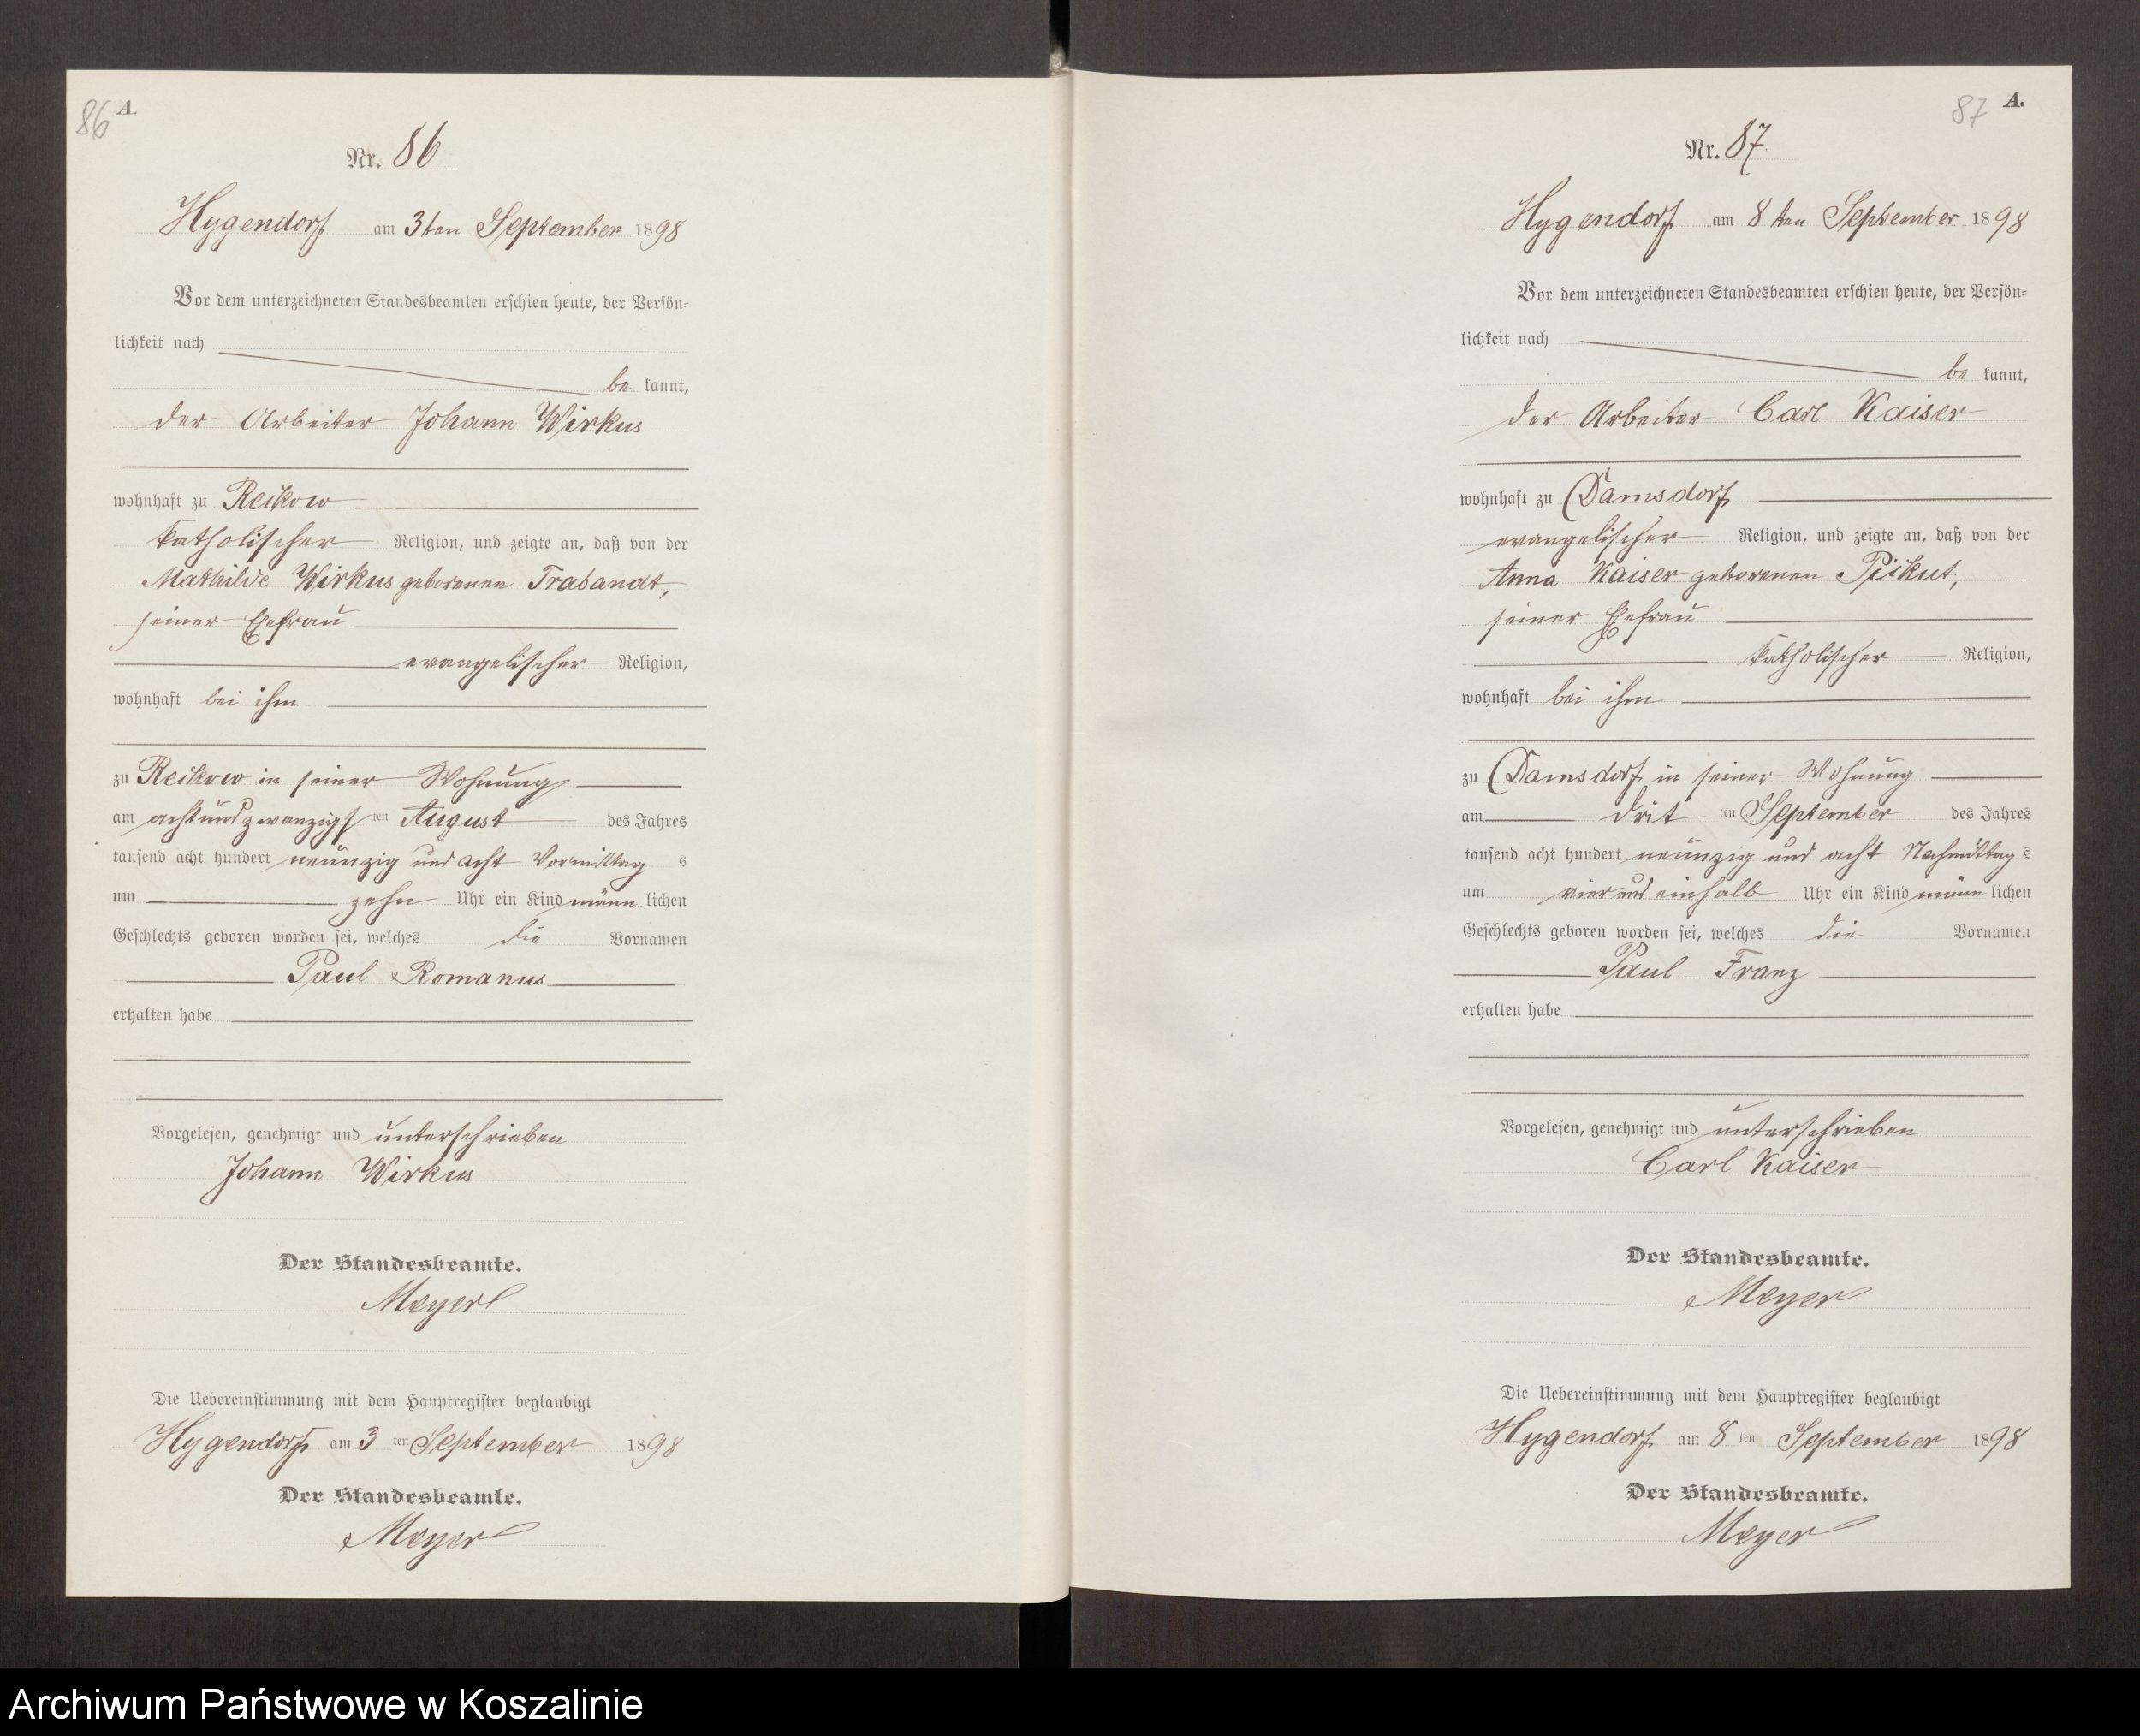 86 A
Nr. 86
Hygendorf am 3ten September 1898
Vor dem unterzeichneten Standesbeamten erschien heute, der Persön-
lichkeit nach
be kannt,
der Arbeiter Johann Wirkus
wohnhaft zu Reikow
katholischer Religion, und zeigte an, daß von der
Mathilde Wirkus geborenen Trabandt,
seiner Ehefrau
evangelischer Religion,
wohnhaft bei ihm
zu Reikow in seiner Wohnung
am achtundzwanzigsten August des Jahres
tausend acht hundert neunzig und acht Vormittag s
um zehn Uhr ein Kind männ lichen
Geschlechts geboren worden sei, welches die Vornamen
Paul Romanus
erhalten habe
Vorgelesen, genehmigt und unterschrieben
Johann Wirkus
Der Standesbeamte.
Meyer
Die Uebereinstimmung mit dem Hauptregister beglaubigt
Hygendorf am 3 ten September 1898
Der Standesbeamte.
Meyer
87 A.
Nr. 87.
Hygendorf am 8ten September 1898
Vor dem unterzeichneten Standesbeamten erschien heute, der Persön-
lichkeit nach
be kannt,
der Arbeiter Carl Kaiser
wohnhaft zu Damsdorf
evangelischer Religion, und zeigte an, daß von der
Anna Kaiser geborenen Pikut,
seiner Ehefrau
katholischer Religion,
wohnhaft bei ihm
zu Damsdorf in seiner Wohnung
am drit ten September des Jahres
tausend acht hundert neunzig und acht Nachmittag s
um vier und einhalb Uhr ein Kind männ lichen
Geschlechts geboren worden sei, welches die Vornamen
Paul Franz
erhalten habe
Vorgelesen, genehmigt und unterschrieben
Carl Kaiser
Der Standesbeamte.
Meyer
Die Uebereinstimmung mit dem Hauptregister beglaubigt
Hygendorf am 8 ten September 1898
Der Standesbeamte.
Meyer
Archiwum Państwowe w Koszalinie